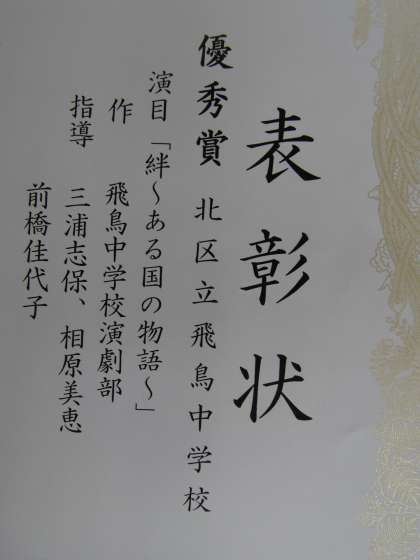 表彰状
優秀賞 北区立飛鳥中学校
演目「絆～ある国の物語～」
作 飛鳥中学校演劇部
指導 三浦志保、相原美恵
前橋佳代子